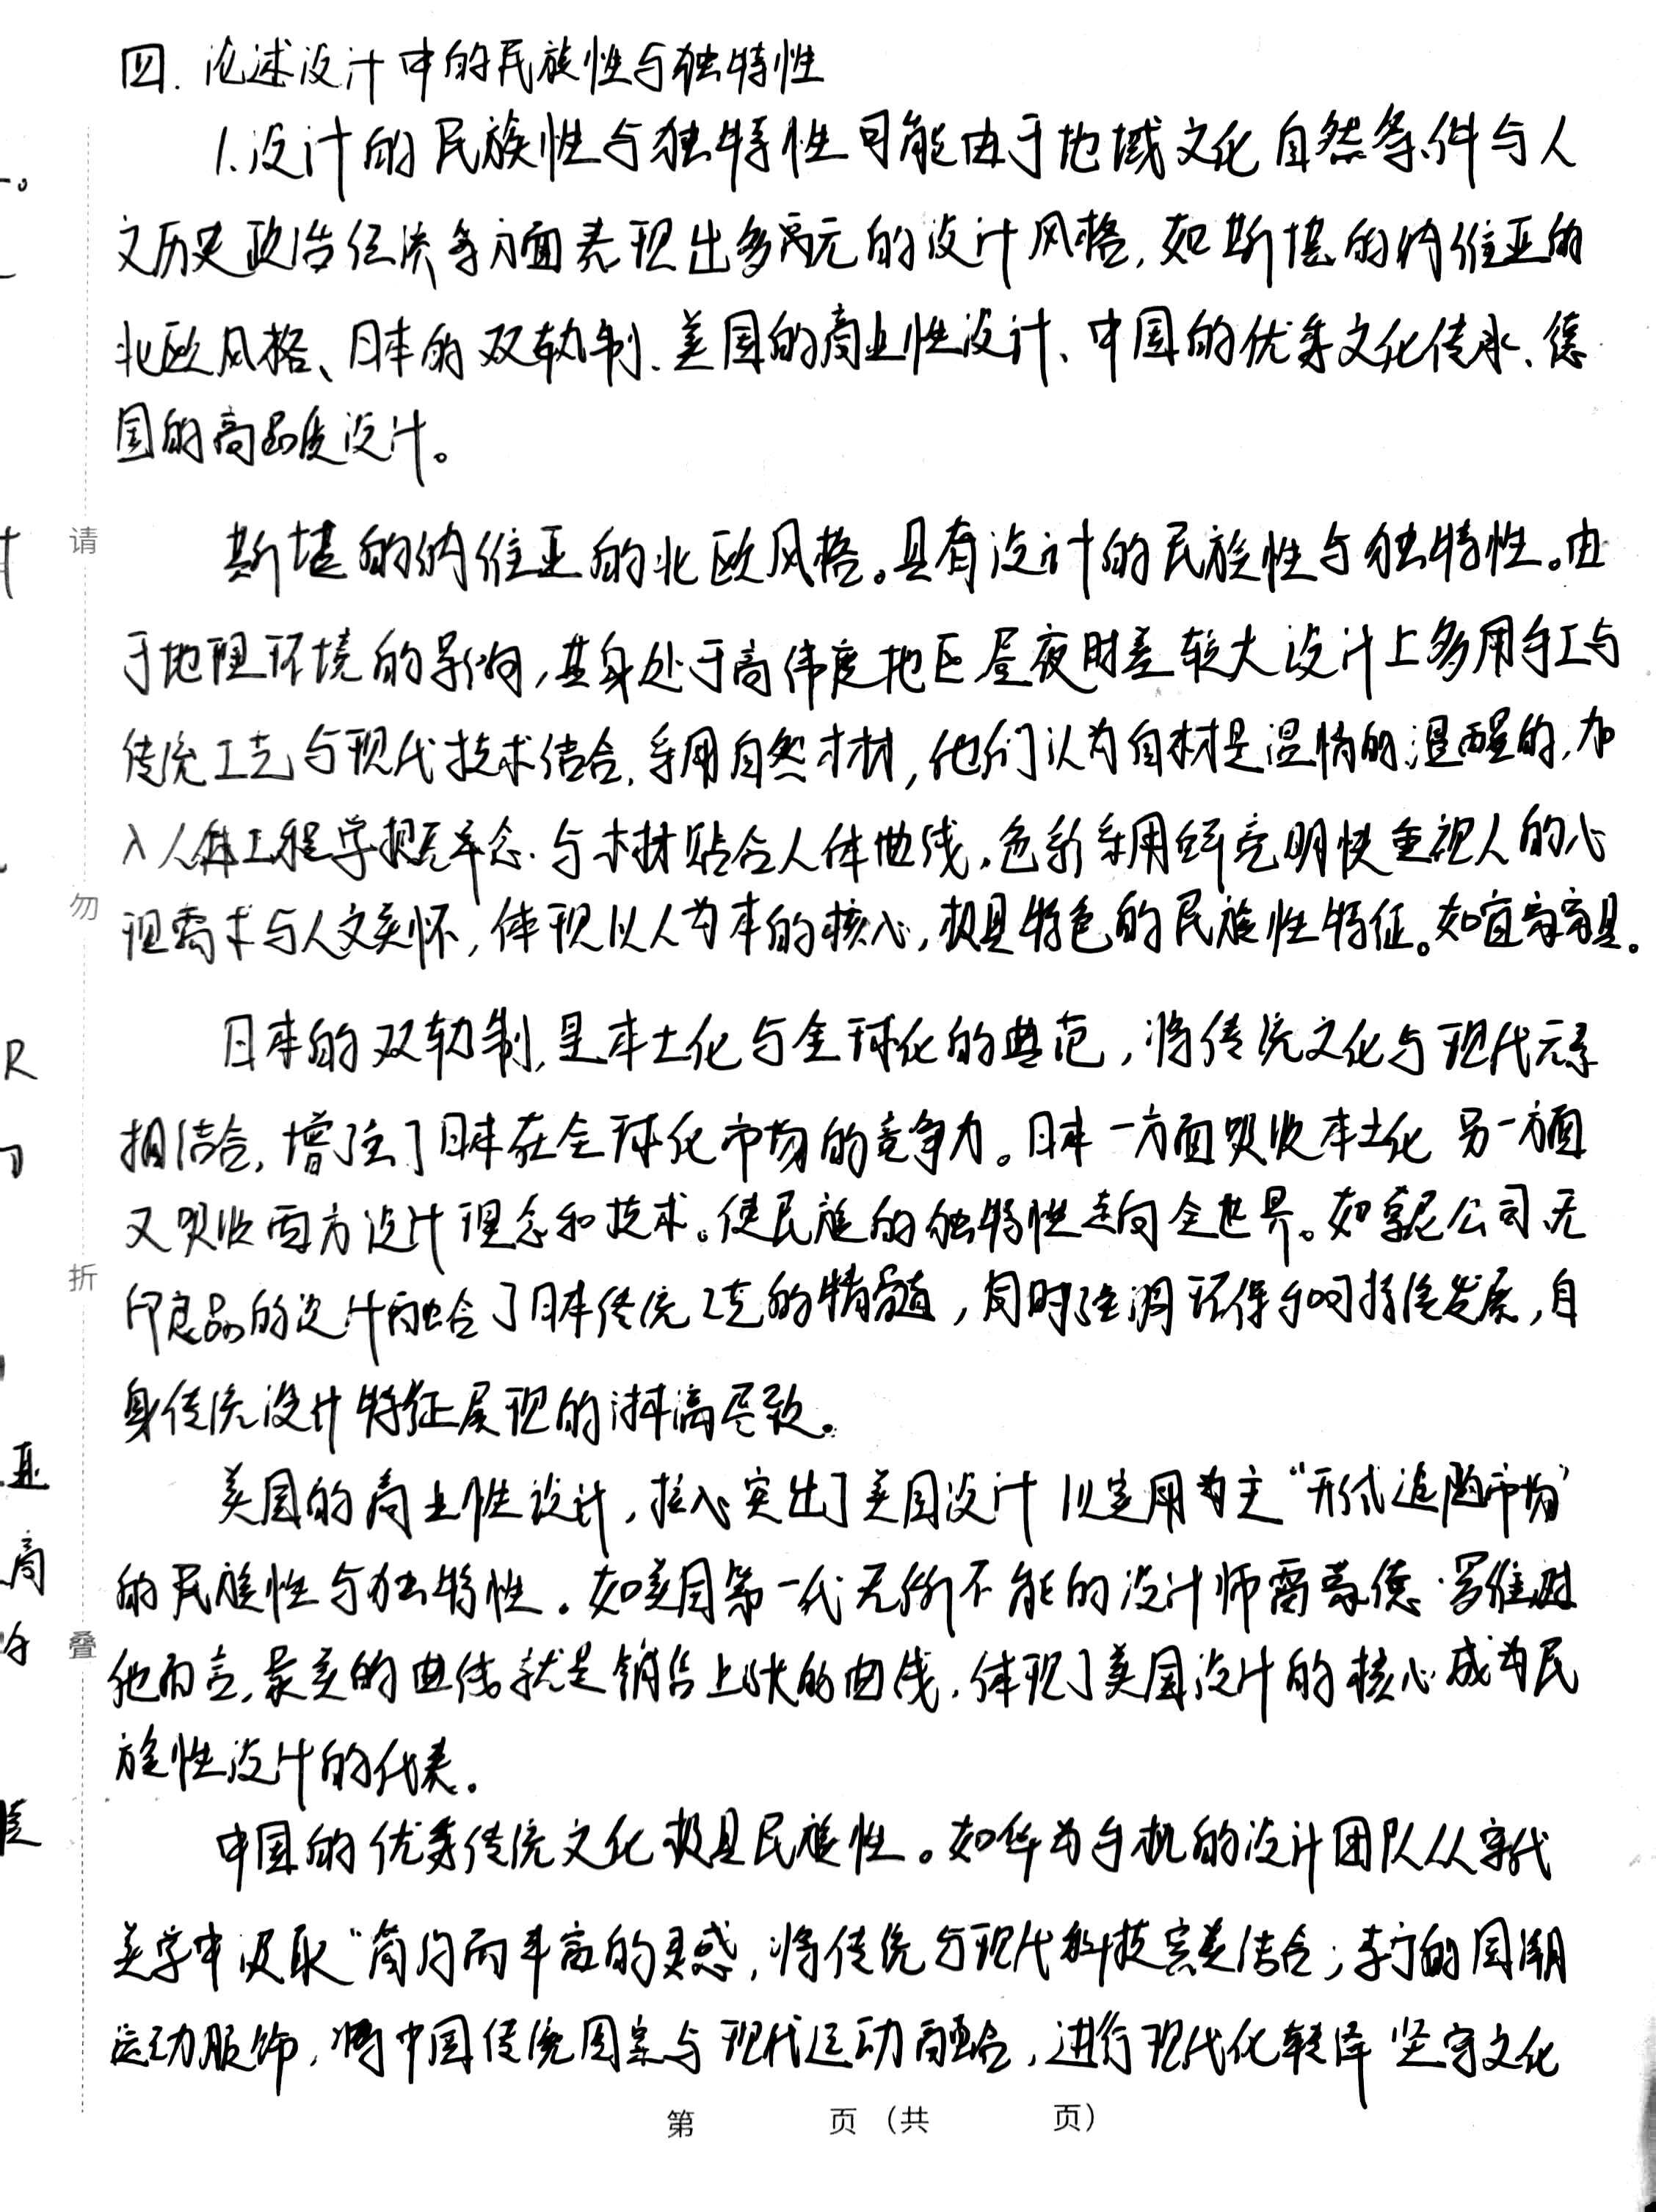 四. 论述设计中的民族性与独特性
1.设计的民族性与独特性可能由于地域文化自然条件与人
文历史政治经济等方面表现出多元的设计风格, 如斯堪的纳维亚的
北欧风格、日本的双轨制、美国的商业性设计、中国的优秀文化传承、德
国的高品质设计。
斯堪的纳维亚的北欧风格。具有设计的民族性与独特性。由
于地理环境的影响, 其身处于高纬度地区昼夜时差较大设计上多用手工与
传统工艺与现代技术结合, 采用自然木材, 他们认为自木材是温情的温暖的, 加
入人体工程学概念. 与木材贴合人体曲线, 色彩采用鲜亮明快重视人的心
理需求与人文关怀, 体现以人为本的核心, 极具特色的民族性特征。如宜家家具。
日本的双轨制, 是本土化与全球化的典范, 将传统文化与现代元素
相结合, 增强了日本在全球化市场的竞争力。日本一方面吸收本土化 另一方面
又吸收西方设计理念和技术。使民族的独特性走向全世界。如索尼公司、无
印良品的设计融合了日本传统工艺的精髓, 同时强调环保与可持续发展, 自
身传统设计特征展现的淋漓尽致。
美国的商业性设计, 核心突出了美国设计以实用为主“形式追随市场”
的民族性与独特性。如美国第一代无所不能的设计师雷蒙德·罗维对
他而言, 最美的曲线就是销售上涨的曲线, 体现了美国设计的核心成为民
族性设计的代表。
中国的优秀传统文化极具民族性。如华为手机的设计团队从宋代
美学中汲取“简约而丰富的灵感, 将传统与现代科技完美结合; 李宁的国潮
运动服饰, 将中国传统图案与现代运动融合, 进行现代化转译 坚守文化
请
勿
折
叠
第 页 (共 页)